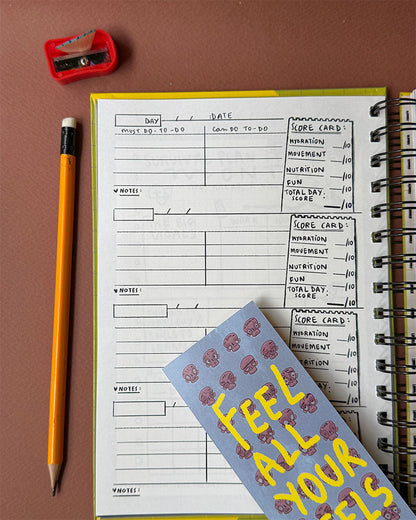 DAY / / DATE
MUST DO-TO-DO Can DO TO-DO
SCORE CARD:
HYDRATION __/10
MOVEMENT __/10
NUTRITION __/10
FUN __/10
TOTAL DAY SCORE __/10
♥ NOTES:
/ /
SCORE CARD:
HYDRATION __/10
MOVEMENT __/10
NUTRITION __/10
FUN __/10
TOTAL DAY SCORE __/10
♥ NOTES:
/ /
SCORE CARD:
HYDRATION __/10
MOVEMENT __/10
NUTRITION __/10
/10
/10
♥ NOTES:
/
♥ NOTES:
FEEL
ALL
YOUR